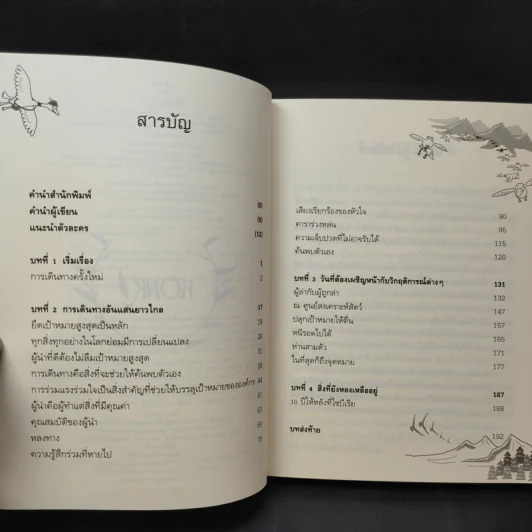 สารบัญ
คำนำสำนักพิมพ์ (8)
คำนำผู้เขียน (9)
แนะนำตัวละคร (12)
บทที่ 1 เริ่มเรื่อง 1
การเดินทางครั้งใหม่ 2
บทที่ 2 การเดินทางอันแสนยาวไกล 17
ยึดเป้าหมายสูงสุดเป็นหลัก
ทุกสิ่งทุกอย่างในโลกย่อมมีการเปลี่ยนแปลง
ผู้นำที่ดีต้องไม่ลืมเป้าหมายสูงสุด
การเดินทางคือสิ่งที่จะช่วยให้ค้นพบตัวเอง
การร่วมแรงร่วมใจเป็นสิ่งสำคัญที่ช่วยให้บรรลุเป้าหมายขององค์กร 44
ผู้นำคือผู้ทำแต่สิ่งที่มีคุณค่า
คุณสมบัติของผู้นำ
หลงทาง
ความรู้สึกร่วมที่หายไป
เสียงเรียกร้องของหัวใจ 90
คาราร่วงหล่น 95
ความเจ็บปวดที่ไม่อาจรับได้ 115
ค้นพบตัวเอง 120
บทที่ 3 วันที่ต้องเผชิญหน้ากับวิกฤติการณ์ต่างๆ 131
ผู้ล่ากับผู้ถูกล่า 132
ณ ศูนย์สงเคราะห์สัตว์ 147
ปลุกเป้าหมายให้ตื่น 157
หนีรอดไปได้ 165
ท่านสามตัว 171
ในที่สุดก็ถึงจุดหมาย 177
บทที่ 4 สิ่งที่ยังหลงเหลืออยู่ 187
10 ปีให้หลังที่ไซบีเรีย 188
บทส่งท้าย 192